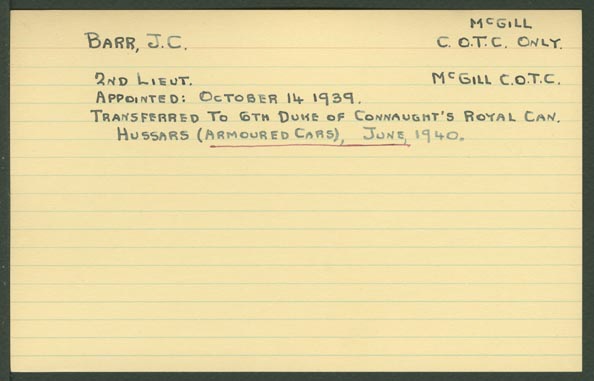 McGILL
BARR, J.C. C.O.T.C. ONLY.
2ND LIEUT. McGILL C.O.T.C.
APPOINTED: OCTOBER 14 1939.
TRANSFERRED TO 6TH DUKE OF CONNAUGHT'S ROYAL CAN.
HUSSARS (ARMOURED CARS), JUNE, 1940.